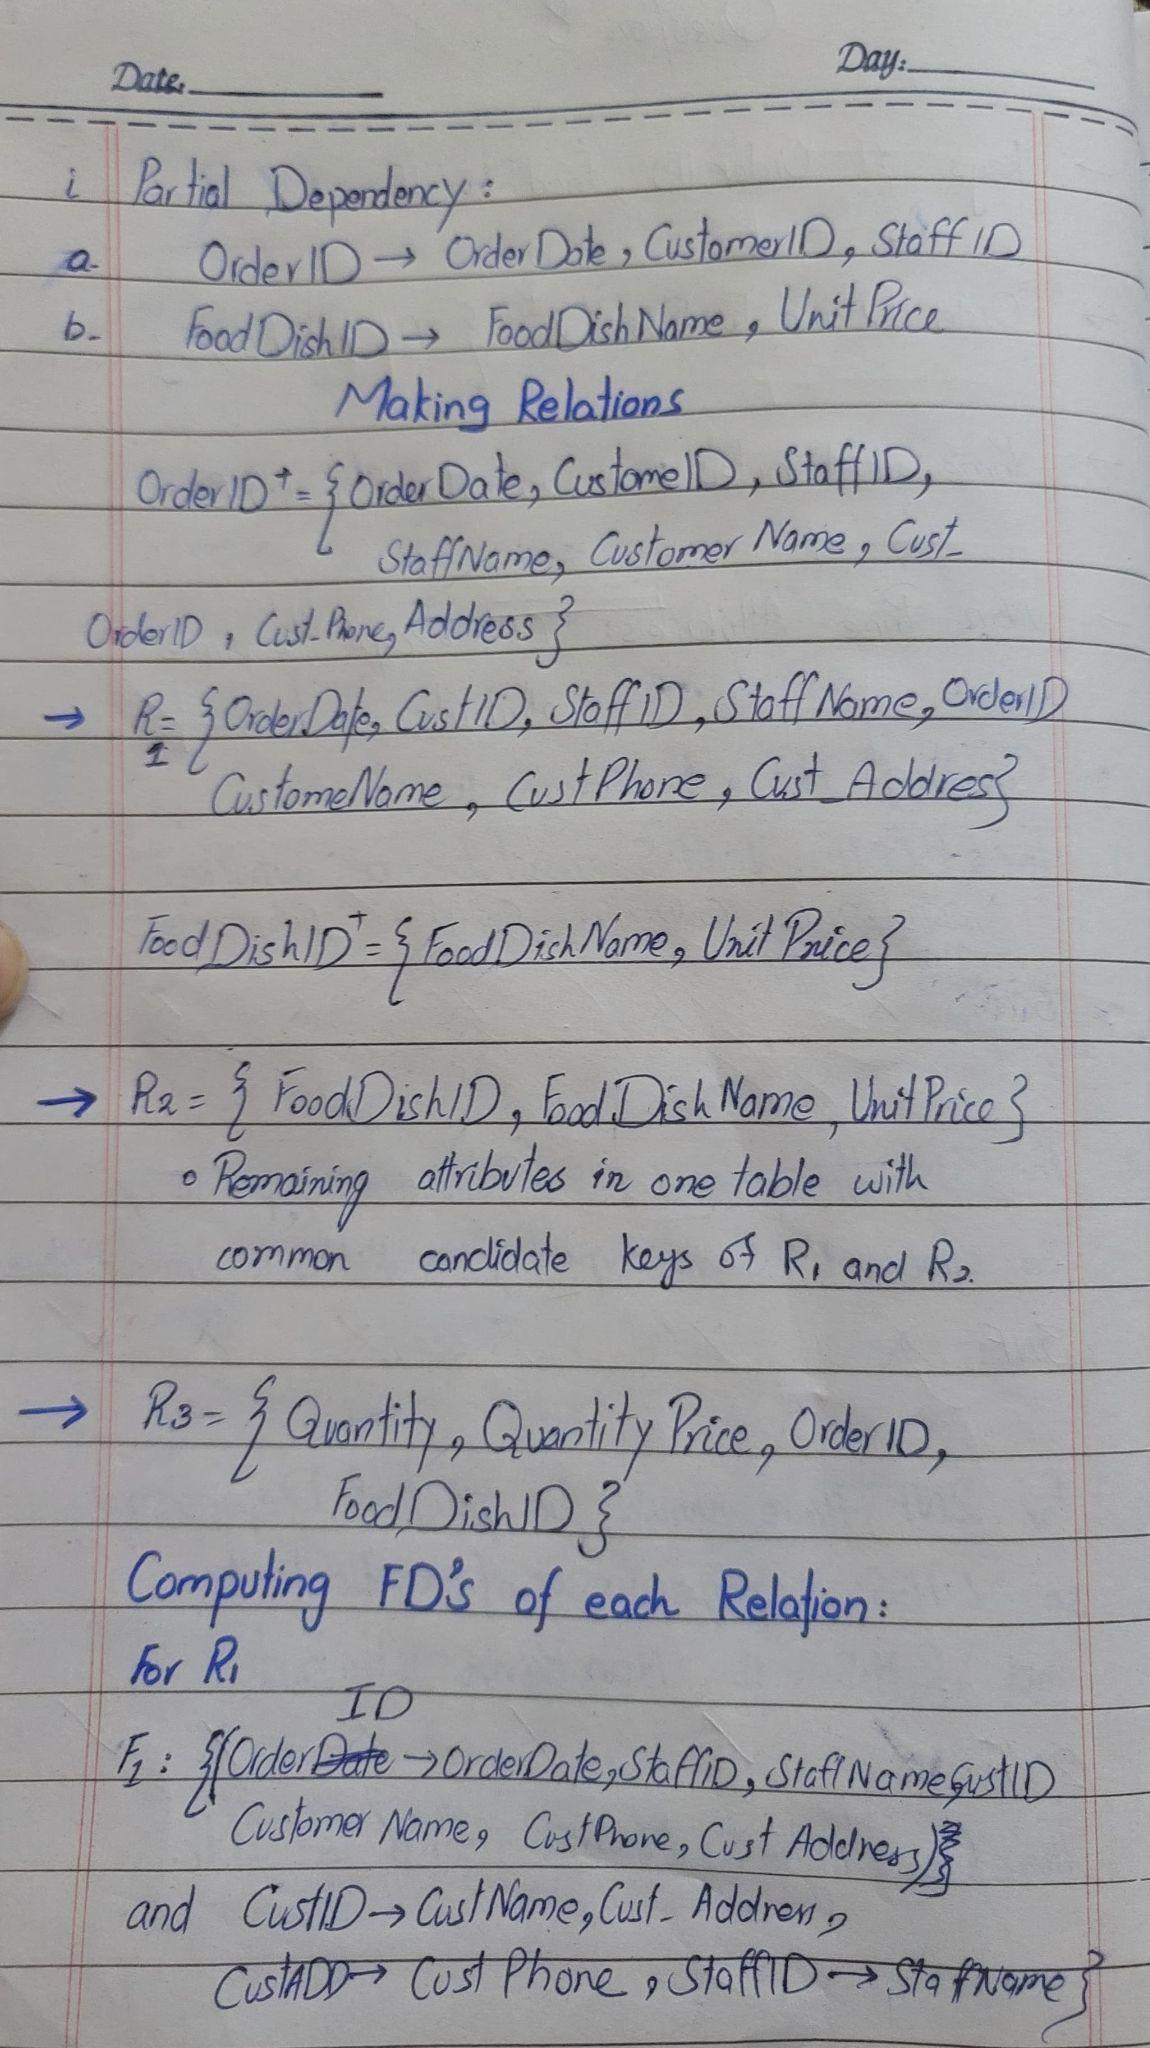 Date.
Day:
i Partial Dependency:
a. OrderID → OrderDate, CustomerID, StaffID
b- FoodDishID → FoodDishName, UnitPrice
Making Relations
OrderID⁺ = {OrderDate, CustomeID, StaffID,
StaffName, Customer Name, Cust_
OrderID, Cust_Phone, Address}
→ R1 = {OrderDate, CustID, StaffID, StaffName, OrderID
CustomeName, CustPhone, Cust_Addres}
FoodDishID⁺ = {FoodDishName, UnitPrice}
→ R2 = {FoodDishID, FoodDishName, UnitPrice}
• Remaining attributes in one table with
common candidate keys of R1 and R2.
→ R3 = {Quantity, QuantityPrice, OrderID,
FoodDishID}
Computing FD's of each Relation:
For R1
ID
F1: {(OrderDate → OrderDate, StaffID, StaffName, CustID
Customer Name, CustPhone, Cust Address)}
and CustID → CustName, Cust_Address,
CustADD → CustPhone, StaffID → StaffName}